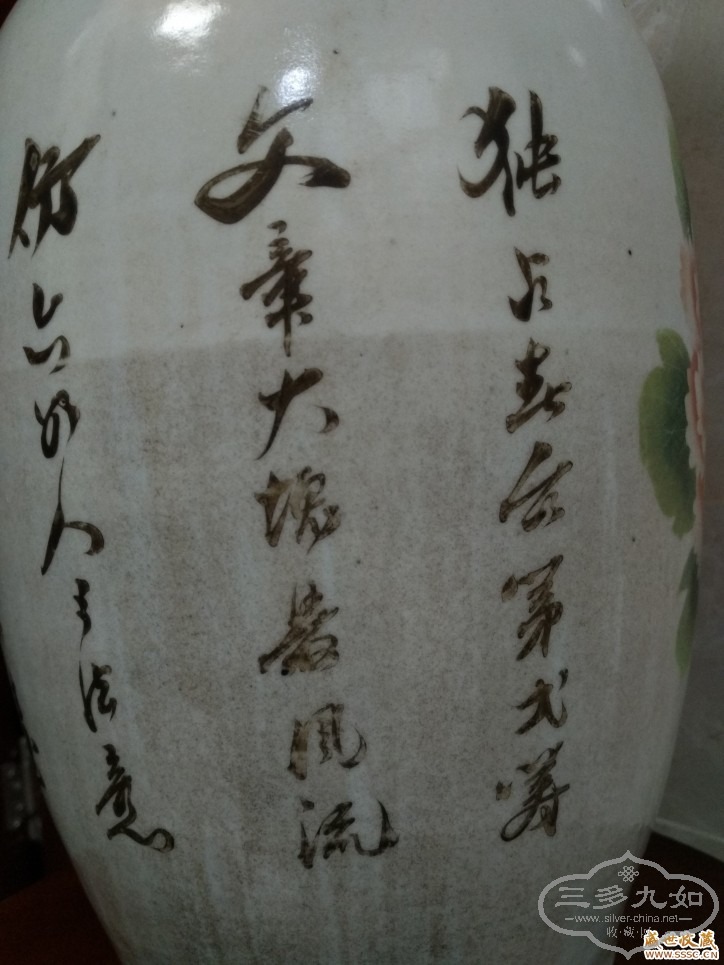 独占春第筹
文章大塊風流
仿人手法意
三多九如
www.silver-china.net
收·藏
盛世收藏
WWW.SSSC.CN